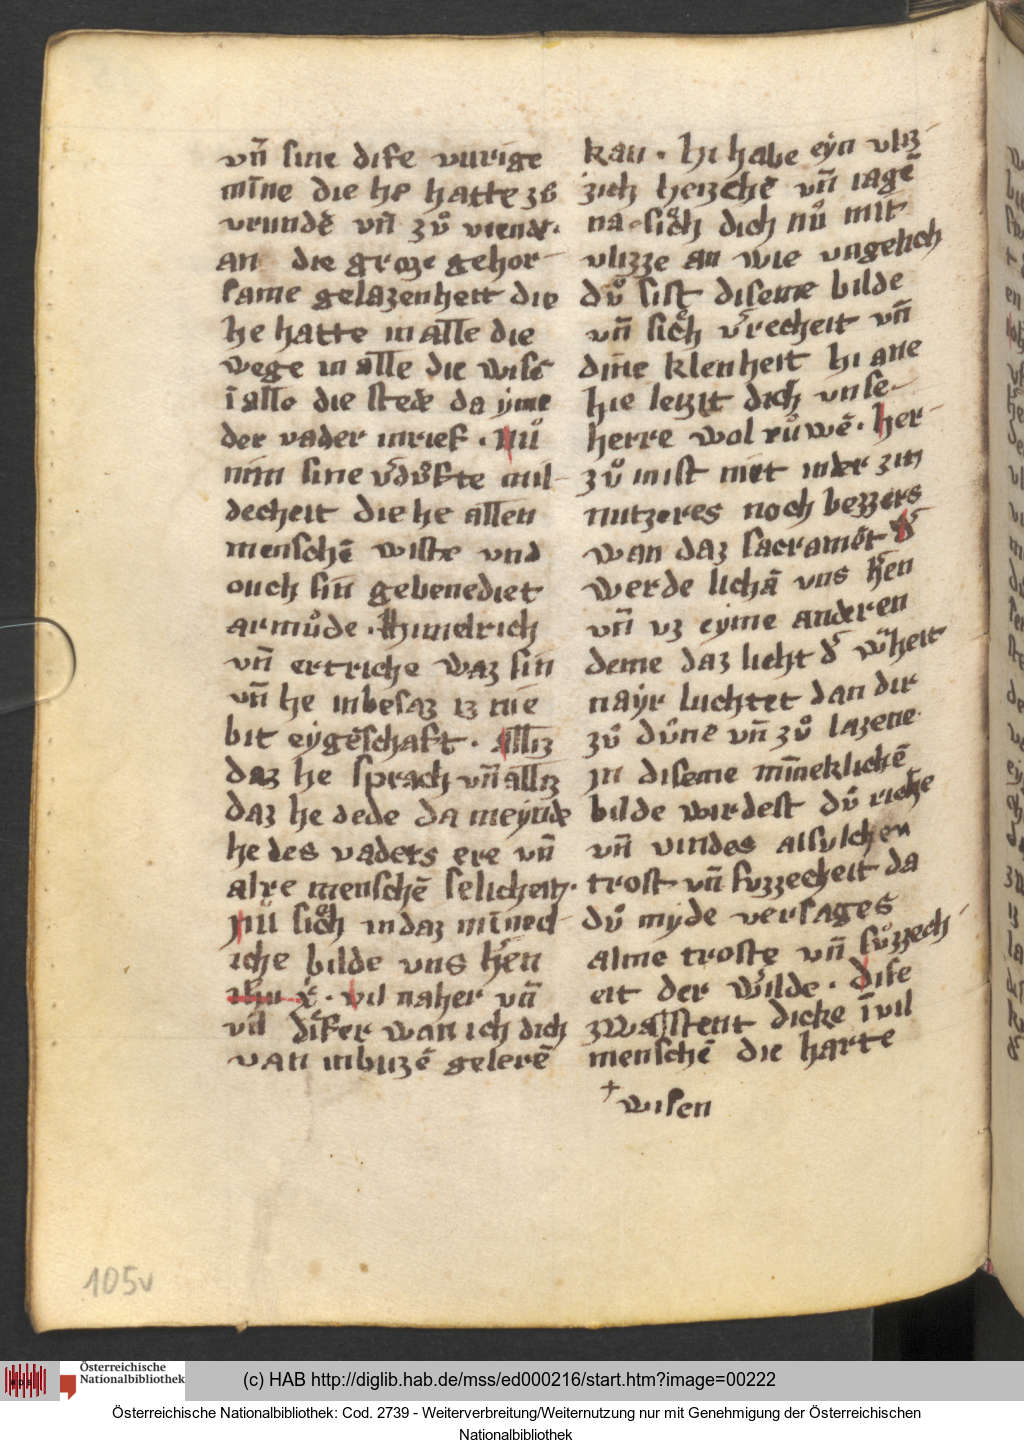 vn̄ sine dise vurige
mīne die he hatte zů
vrundē vn̄ zů viende·
an die groze gehor-
same gelazenheit die
he hatte in alle die
wege in alle die wise
ī alle die stede da yme
der vader inrief · Nů
nim sine
decheit die he allen
menschē wiste vnd
ouch sin gebenediet
armůde · Himelrich
vn̄ ertriche waz sin
vn̄ he inbesaz iz nie
bit eygēschaft · alliz
daz he sprach vn̄ alliz
daz he dede da meynde
he des vaders ere vn̄
alre menschē selicheit·
Nů sich in daz mīnec-
iche bilde vns hr̄en
ihu xp̄ · vil naher vn̄
vil dīfer wan ich dich
van inbuzē gelerē
kan · hi habe eyn vliz-
zich herzchē vn̄ iagē
na · sich dich nů mit
vlizze an wie vngelich
dů sist diseme bilde
vn̄ sich vrecheit vn̄
dine klenheit hi ane
hie leizit dich vnse-
herre wol růwē · her-
zů inist niet inder zin
nutzeres noch bezzers
wan daz sacramēt d͛
werde lichā vns hr̄en
vn̄ vz eyme anderen
deme daz licht d͛ w͛heit
nayr luchtet dan dir
zů důne vn̄ zů lazene·
in diseme mīneklichē
bilde wirdest dů riche
vn̄ vindes alsulchen
trost vn̄ suzzecheit da
dů myde versages
alme troste vn̄ sůzzech-
eit der wilde · dise
zwa stent dicke ī vil
menschē die harte
+ wisen
105v
Österreichische
Nationalbibliothek
(c) HAB http://diglib.hab.de/mss/ed000216/start.htm?image=00222
Österreichische Nationalbibliothek: Cod. 2739 - Weiterverbreitung/Weiternutzung nur mit Genehmigung der Österreichischen
Nationalbibliothek